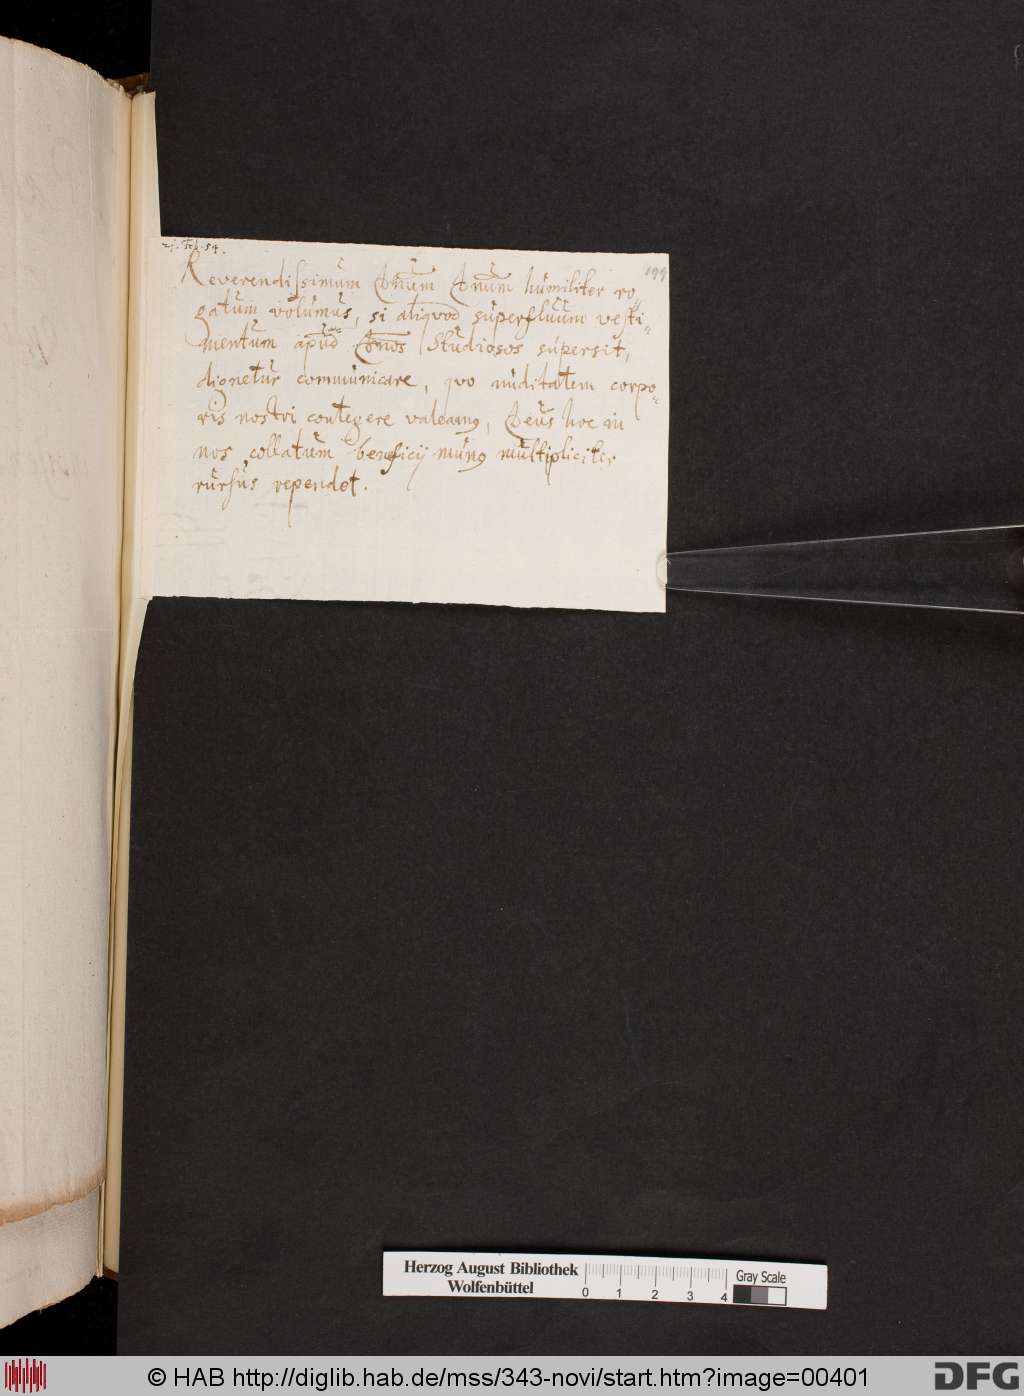 21. Feb. 54.
199
Reverendissimum Dn̄um Dn̄um humiliter ro⸗
gatum volumus, si aliqvod superfluum vesti⸗
mentum apud Dn̄os Studiosos supersit,
dignetur communicare, qvo nuditatem corpo⸗
ris nostri contegere valeamꝰ, Deus hoc in
nos collatum beneficij munꝰ multipliciter
rursus rependet.
Herzog August Bibliothek
Wolfenbüttel
0 1 2 3 4
Gray Scale
© HAB http://diglib.hab.de/mss/343-novi/start.htm?image=00401
DFG